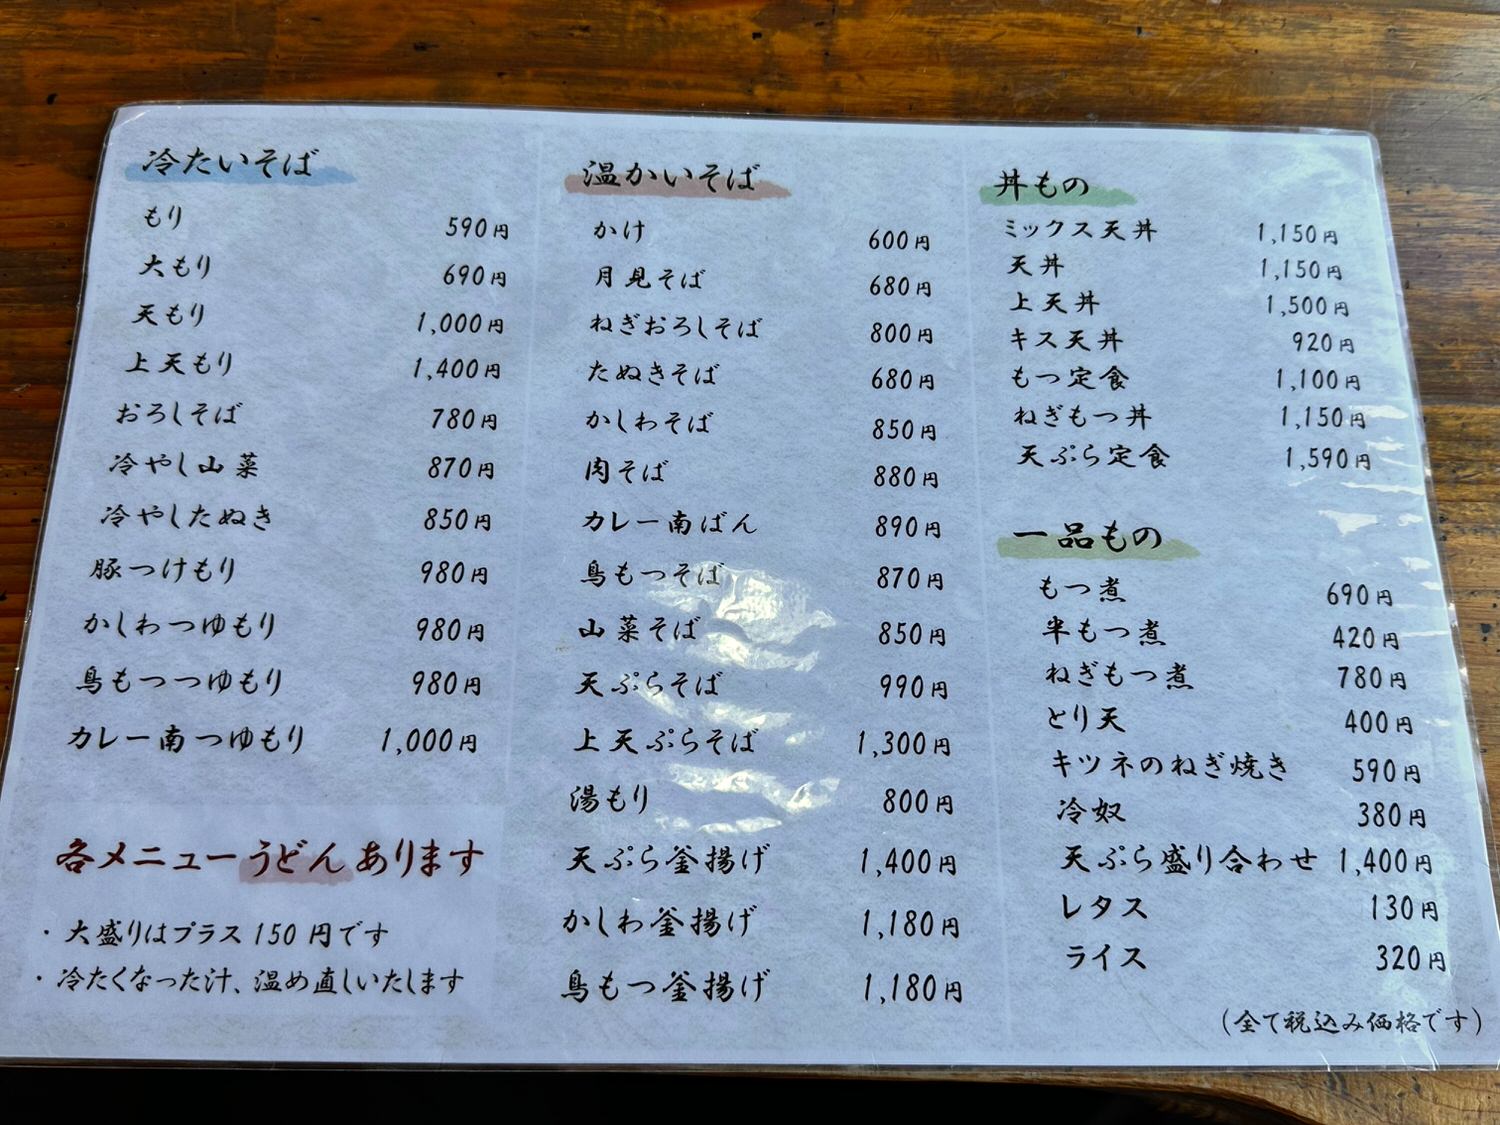 冷たいそば
もり 590円
大もり 690円
天もり 1,000円
上天もり 1,400円
おろしそば 780円
冷やし山菜 870円
冷やしたぬき 850円
豚つけもり 980円
かしわつゆもり 980円
鳥もつつゆもり 980円
カレー南つゆもり 1,000円
各メニューうどんあります
・大盛りはプラス150円です
・冷たくなった汁、温め直しいたします
温かいそば
かけ 600円
月見そば 680円
ねぎおろしそば 800円
たぬきそば 680円
かしわそば 850円
肉そば 880円
カレー南ばん 890円
鳥もつそば 870円
山菜そば 850円
天ぷらそば 990円
上天ぷらそば 1,300円
湯もり 800円
天ぷら釜揚げ 1,400円
かしわ釜揚げ 1,180円
鳥もつ釜揚げ 1,180円
丼もの
ミックス天丼 1,150円
天丼 1,150円
上天丼 1,500円
キス天丼 920円
もつ定食 1,100円
ねぎもつ丼 1,150円
天ぷら定食 1,590円
一品もの
もつ煮 690円
半もつ煮 420円
ねぎもつ煮 780円
とり天 400円
キツネのねぎ焼き 590円
冷奴 380円
天ぷら盛り合わせ 1,400円
レタス 130円
ライス 320円
(全て税込み価格です)